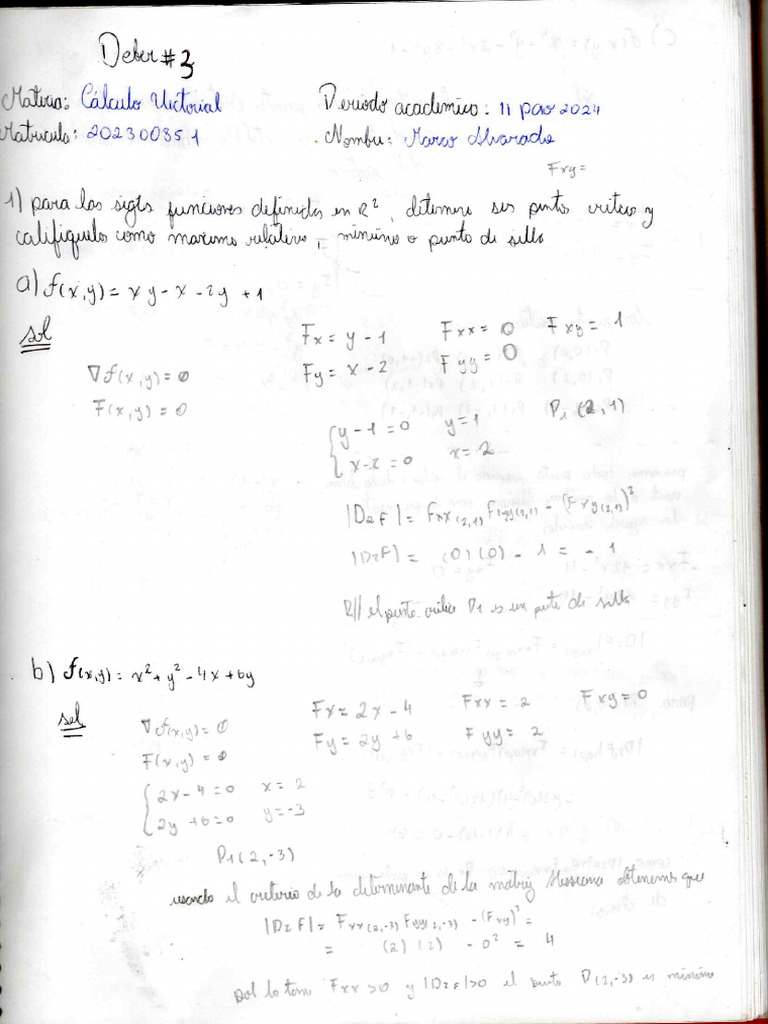 Deber #3
Materia: Cálculo Vectorial
Periodo academico: 11 pao 2024
Matricula: 202300351
Nombre: Marco Alvarado
Fxy=
1) para las sigts funciones definidas en R², determine sus puntos criticos y
califiquelos como maximo relativo, minimo o punto de silla
a) f(x,y) = xy - x - 2y + 1
sol
Fx = y - 1 Fxx = 0 Fxy = 1
Fy = x - 2 Fyy = 0
∇f(x,y) = 0
F(x,y) = 0
P1 (2,1)
{ y - 1 = 0 y = 1
x - 2 = 0 x = 2
|D2F| = Fxx(2,1) Fyy(2,1) - (Fxy(2,1))²
|D2F| = (0)(0) - 1 = - 1
R// el punto critico P1 es un punto de silla
b) f(x,y) = x² + y² - 4x + 6y
sol
Fx = 2x - 4 Fxx = 2 Fxy = 0
Fy = 2y + 6 Fyy = 2
∇f(x,y) = 0
F(x,y) = 0
{ 2x - 4 = 0 x = 2
2y + 6 = 0 y = -3
P1(2,-3)
usando el criterio de la determinante de la matriz Hessiana obtenemos que
|D2F| = Fxx(2,-3) Fyy(2,-3) - (Fxy)² =
= (2)(2) - 0² = 4
por lo tanto Fxx > 0 y |D2F| > 0 el punto P(2,-3) es minimo